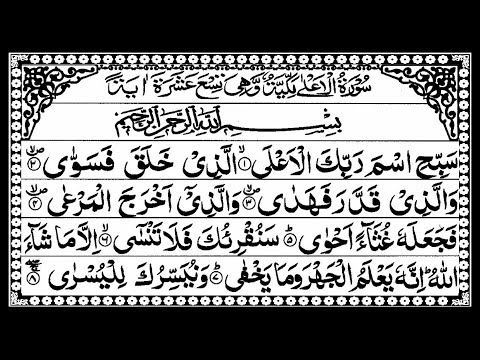 سُوْرَةُ الْاَعْلٰى مَكِّيَّةٌ وَّهِيَ تِسْعَ عَشْرَةَ اٰيَةً
بِسْمِ اللّٰهِ الرَّحْمٰنِ الرَّحِيْمِ
سَبِّحِ اسْمَ رَبِّكَ الْاَعْلَى ۙ﴿۱﴾ الَّذِيْ خَلَقَ فَسَوّٰى ۪ۙ﴿۲﴾
وَالَّذِيْ قَدَّرَ فَهَدٰى ۪ۙ﴿۳﴾ وَالَّذِيْٓ اَخْرَجَ الْمَرْعٰى ۪ۙ﴿۴﴾
فَجَعَلَهٗ غُثَآءً اَحْوٰى ؕ﴿۵﴾ سَنُقْرِئُكَ فَلَا تَنْسٰٓى ۙ﴿۶﴾ اِلَّا مَا شَآءَ
اللّٰهُ ؕ اِنَّهٗ يَعْلَمُ الْجَهْرَ وَمَا يَخْفٰى ؕ﴿۷﴾ وَنُيَسِّرُكَ لِلْيُسْرٰى ۚۖ﴿۸﴾